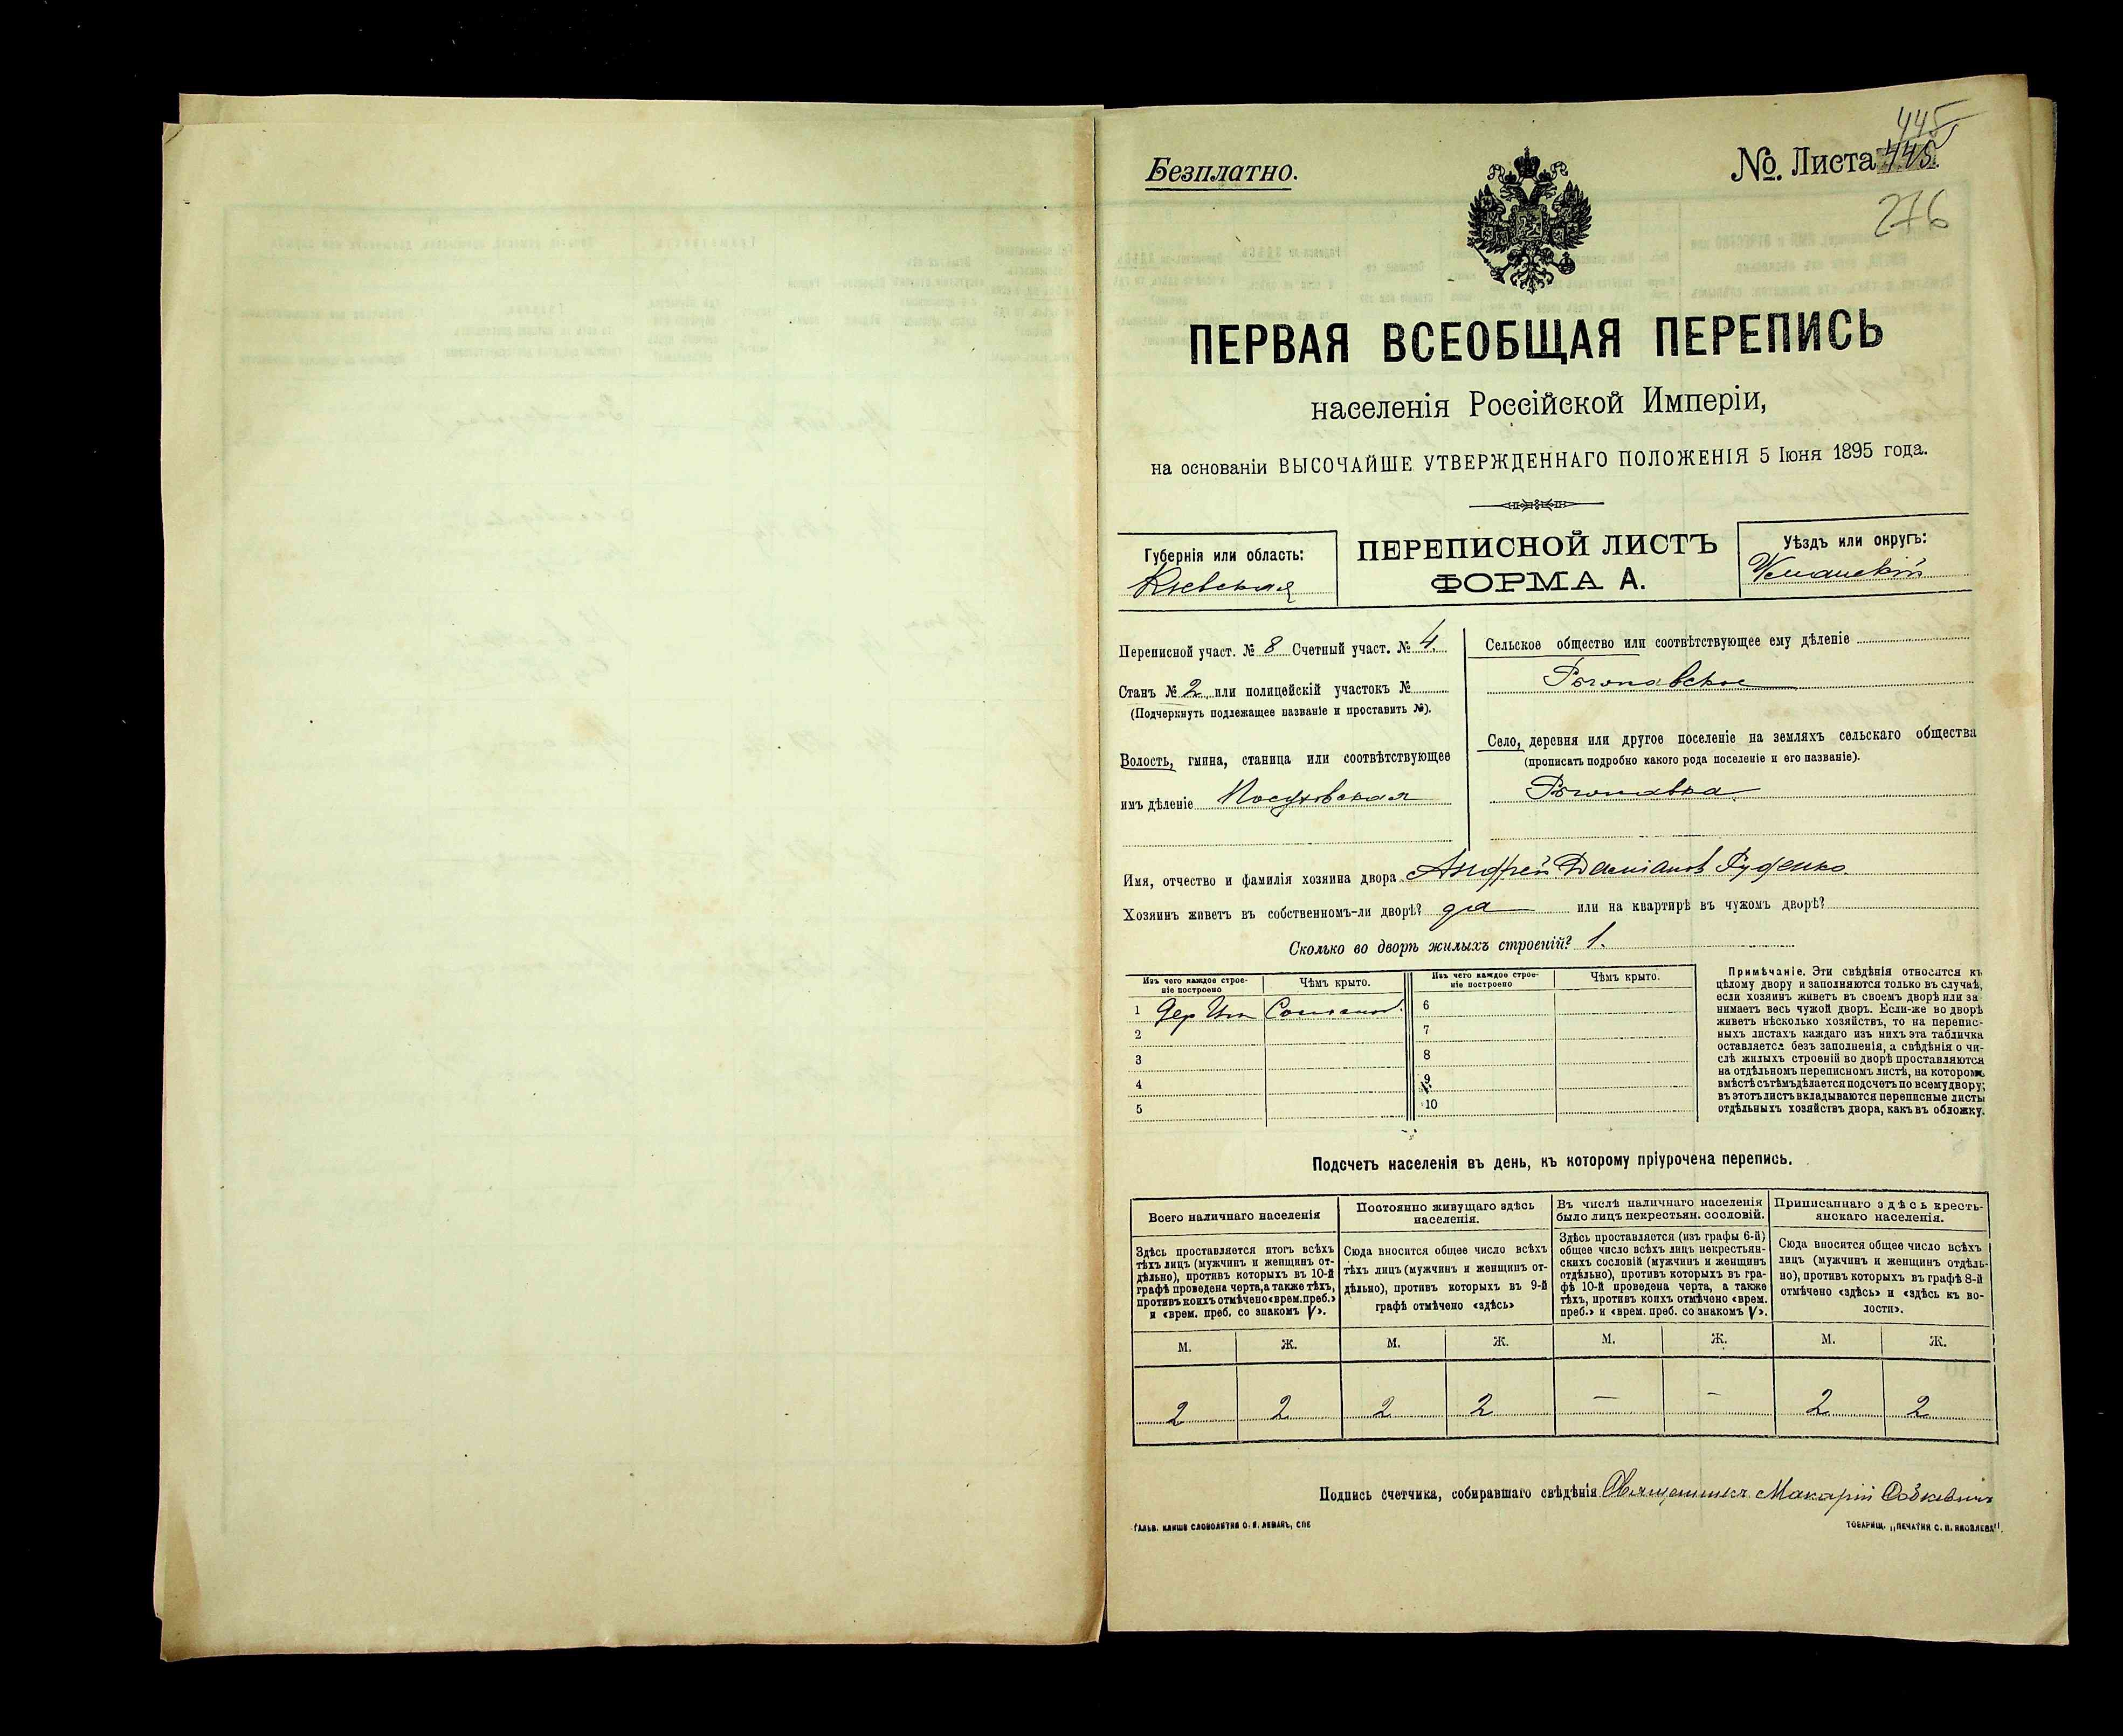 445
Безплатно.
№. Листа 445.
276
ПЕРВАЯ ВСЕОБЩАЯ ПЕРЕПИСЬ
населенія Россійской Имперіи,
на основаніи ВЫСОЧАЙШЕ УТВЕРЖДЕННАГО ПОЛОЖЕНІЯ 5 Іюня 1895 года.
Губернія или область:
Кіевская
ПЕРЕПИСНОЙ ЛИСТЪ
ФОРМА А.
Уѣздъ или округъ:
Уманскій
Переписной участ. № 8 Счетный участ. № 4.
Станъ № 2 или полицейскій участокъ №
(Подчеркнуть подлежащее названіе и проставить №).
Волость, гмина, станица или соотвѣтствующее
имъ дѣленіе Посуховская
Сельское общество или соотвѣтствующее ему дѣленіе
Рогоповское
Село, деревня или другое поселеніе на земляхъ сельскаго общества
(прописать подробно какого рода поселеніе и его названіе).
Имя, отчество и фамилія хозяина двора Андрей Даміановъ Руденко.
Хозяинъ живетъ въ собственномъ-ли дворѣ? да или на квартирѣ въ чужомъ дворѣ?
Сколько во дворѣ жилыхъ строеній? 1.
Изъ чего каждое строе-
ніе построено
Чѣмъ крыто.
Изъ чего каждое строе-
ніе построено
Чѣмъ крыто.
1 Дер Соломой.
2
3
4
5
6
7
8
9
10
Примѣчаніе. Эти свѣдѣнія относятся къ
цѣлому двору и заполняются только въ случаѣ,
если хозяинъ живетъ въ своемъ дворѣ или за
нимаетъ весь чужой дворъ. Если-же во дворѣ
живетъ нѣсколько хозяйствъ, то на перепис-
ныхъ листахъ каждаго изъ нихъ эта табличка
оставляется безъ заполненія, а свѣдѣнія о чи-
слѣ жилыхъ строеній во дворѣ проставляются
на отдѣльномъ переписномъ листѣ, на которомъ
вмѣстѣ съ тѣмъ дѣлается подсчетъ по всему двору;
въ этотъ листъ вкладываются переписные листы
отдѣльныхъ хозяйствъ двора, какъ въ обложку.
Подсчетъ населенія въ день, къ которому пріурочена перепись.
Всего наличнаго населенія
Здѣсь проставляется итогъ всѣхъ
тѣхъ лицъ (мужчинъ и женщинъ от-
дѣльно), противъ которыхъ въ 10-й
графѣ проведена черта, а также тѣхъ,
противъ коихъ отмѣчено «врем. преб.»
и «врем. преб. со знакомъ V».
Постоянно живущаго здѣсь
населенія.
Сюда вносится общее число всѣхъ
тѣхъ лицъ (мужчинъ и женщинъ от-
дѣльно), противъ которыхъ въ 9-й
графѣ отмѣчено «здѣсь»
Въ числѣ наличнаго населенія
было лицъ некрестьян. сословій.
Здѣсь проставляется (изъ графы 6-й)
общее число всѣхъ лицъ некрестьян-
скихъ сословій (мужчинъ и женщинъ
отдѣльно), противъ которыхъ въ гра-
фѣ 10-й проведена черта, а также
тѣхъ, противъ коихъ отмѣчено «врем.
преб.» и «врем. преб. со знакомъ V».
Приписаннаго здѣсь кресть-
янскаго населенія.
Сюда вносится общее число всѣхъ
лицъ (мужчинъ и женщинъ отдѣль-
но), противъ которыхъ въ графѣ 8-й
отмѣчено «здѣсь» и «здѣсь къ во-
лости».
М. Ж. М. Ж. М. Ж. М. Ж.
2 2 2 2 — — 2 2
Подпись счетчика, собиравшаго свѣдѣнія Священникъ Макарій
ГАЛЬВ. КЛИШЕ СЛОВОЛИТНЯ О. И. ЛЕМАНЪ, СПБ
ТОВАРИЩ. „ПЕЧАТНЯ С. П. ЯКОВЛЕВА".